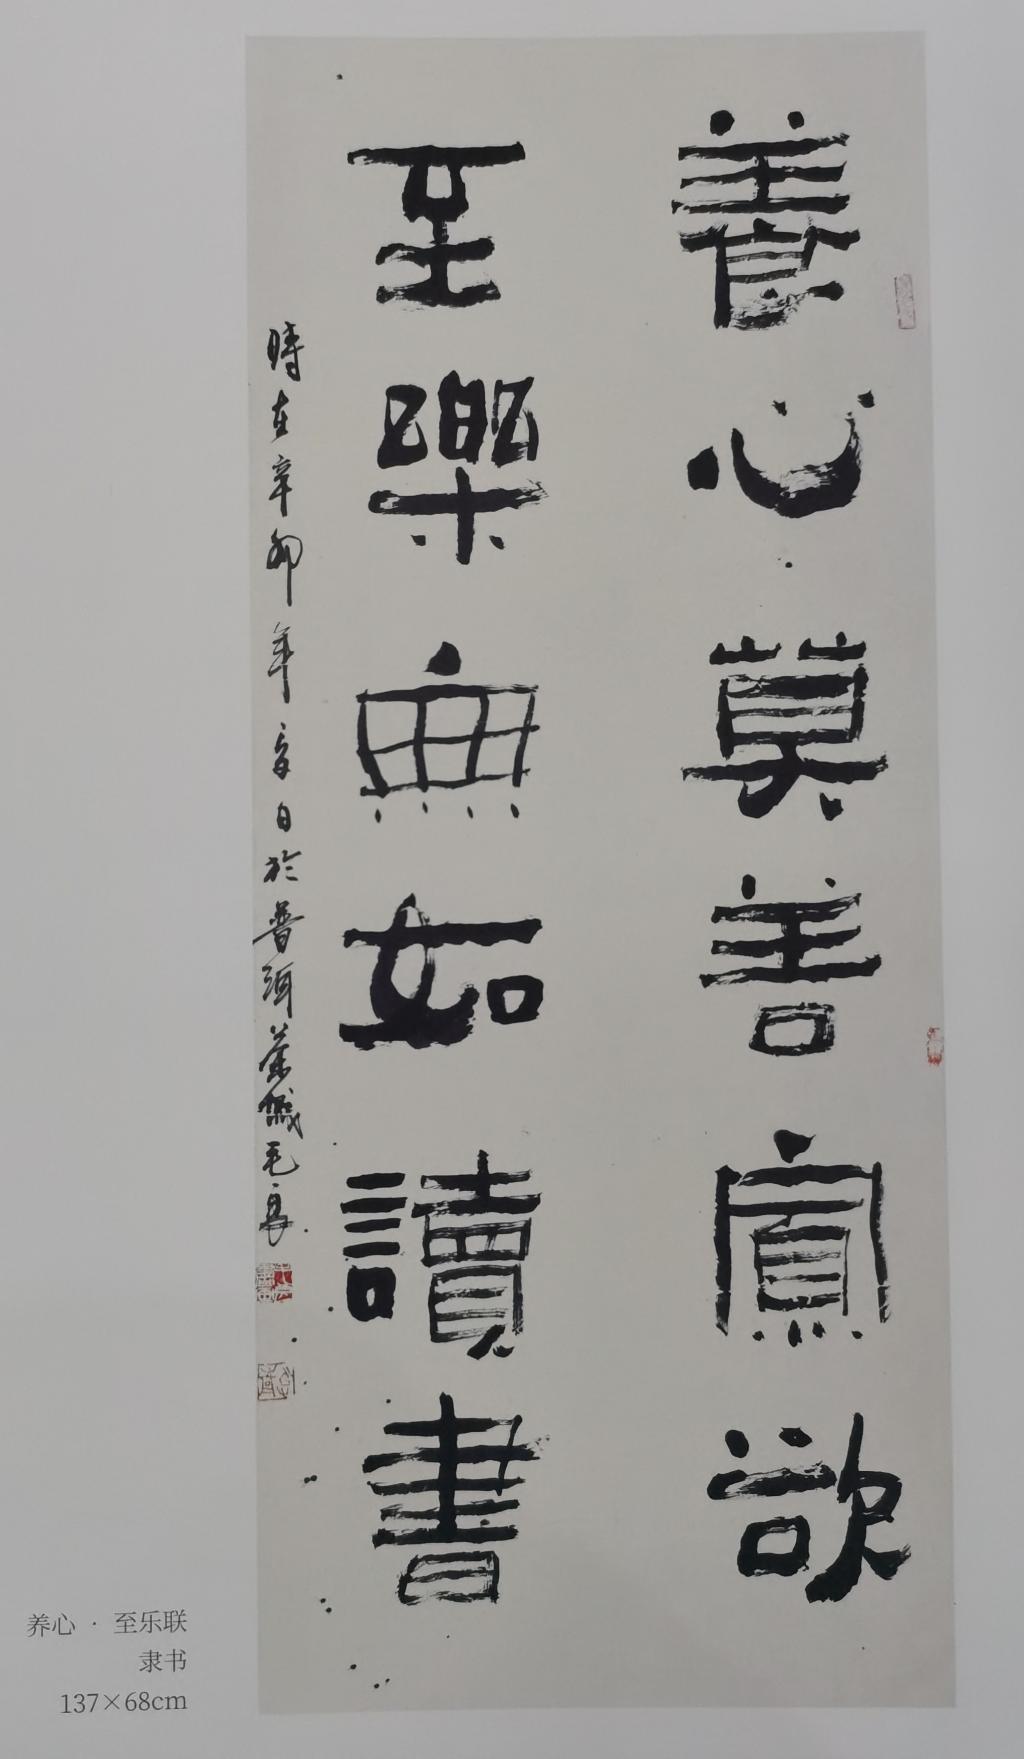 養心莫善寡欲
至樂無如讀書
時在辛卯年夏日於普洱茶城毛良
养心 · 至乐联
隶书
137×68cm